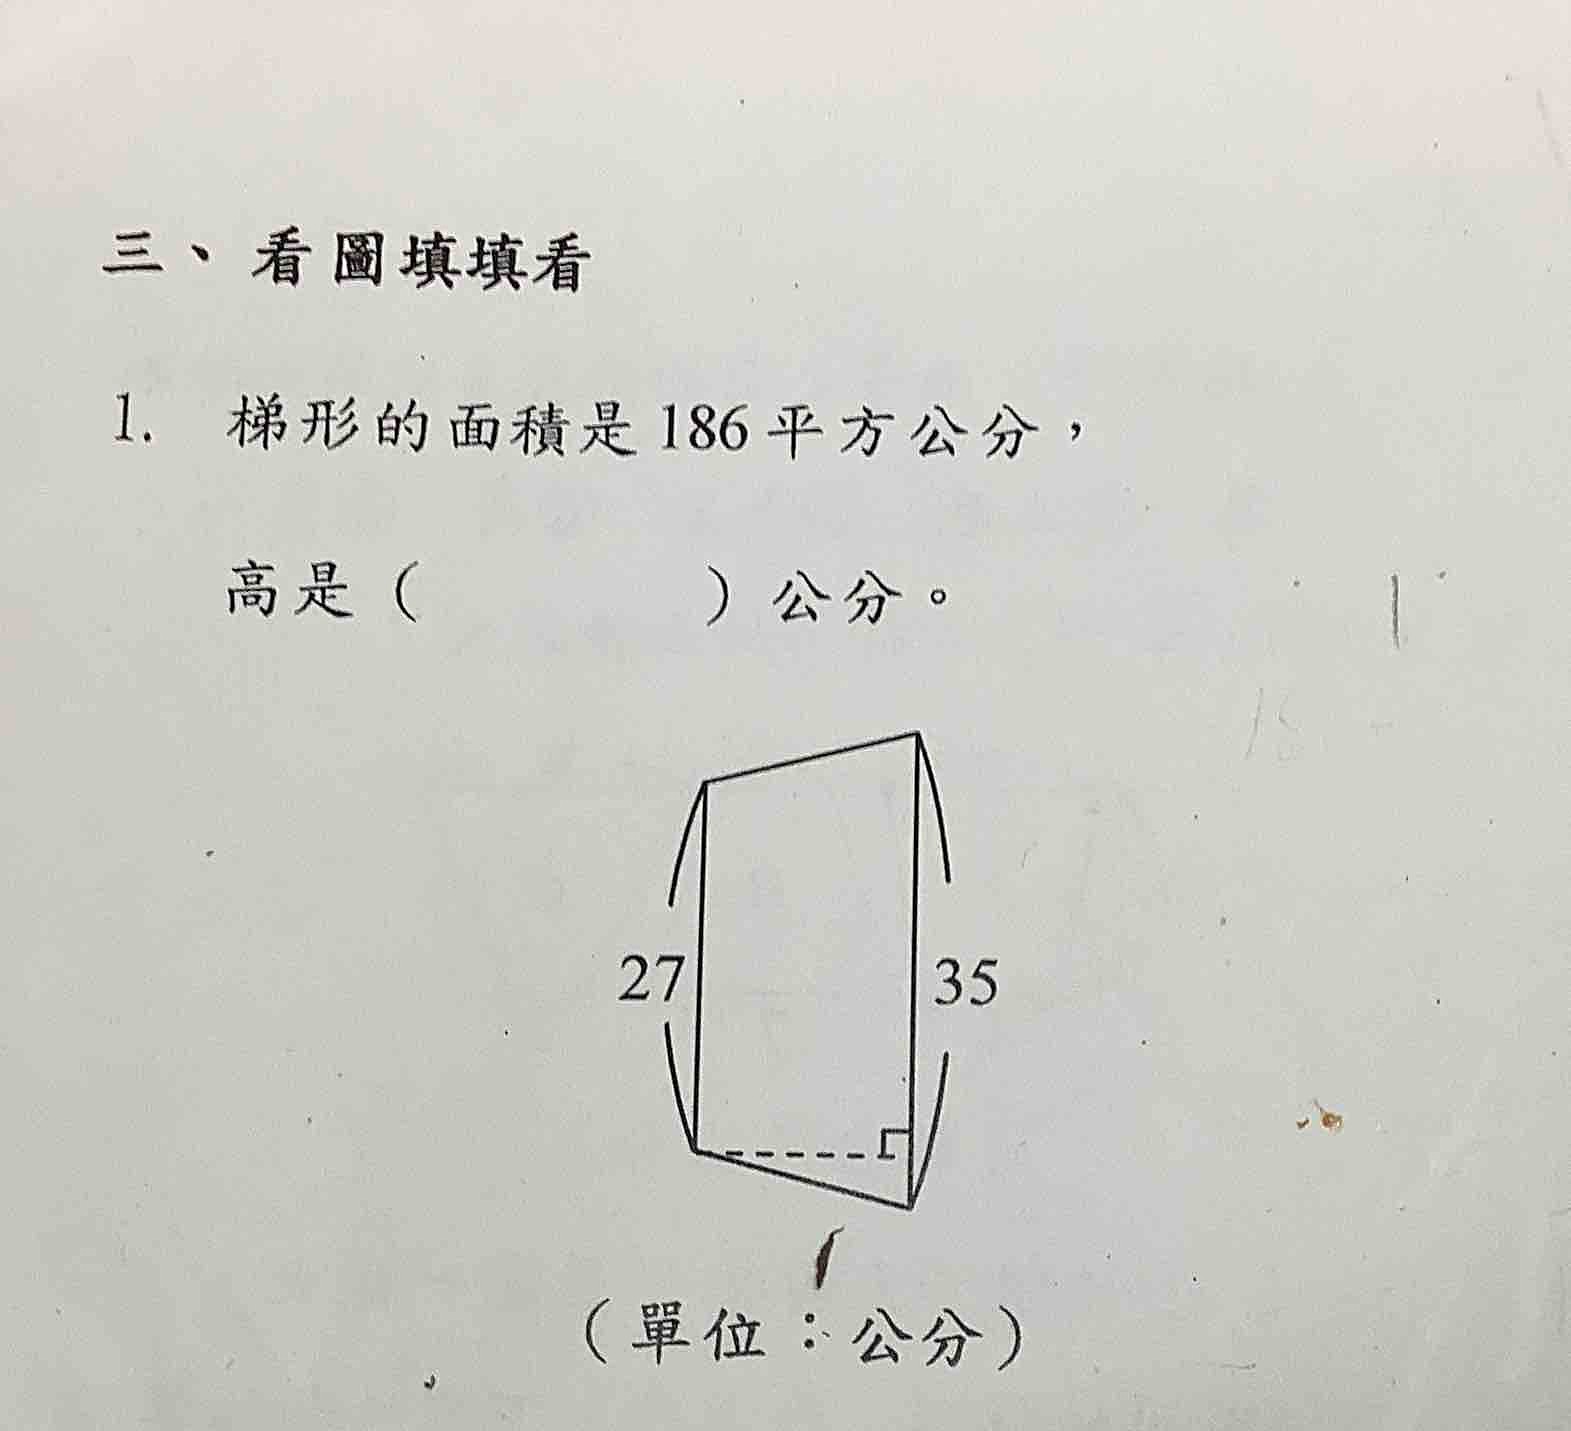 三、看圖填填看
1. 梯形的面積是186平方公分，
高是（　　　　）公分。
27
35
（單位：公分）